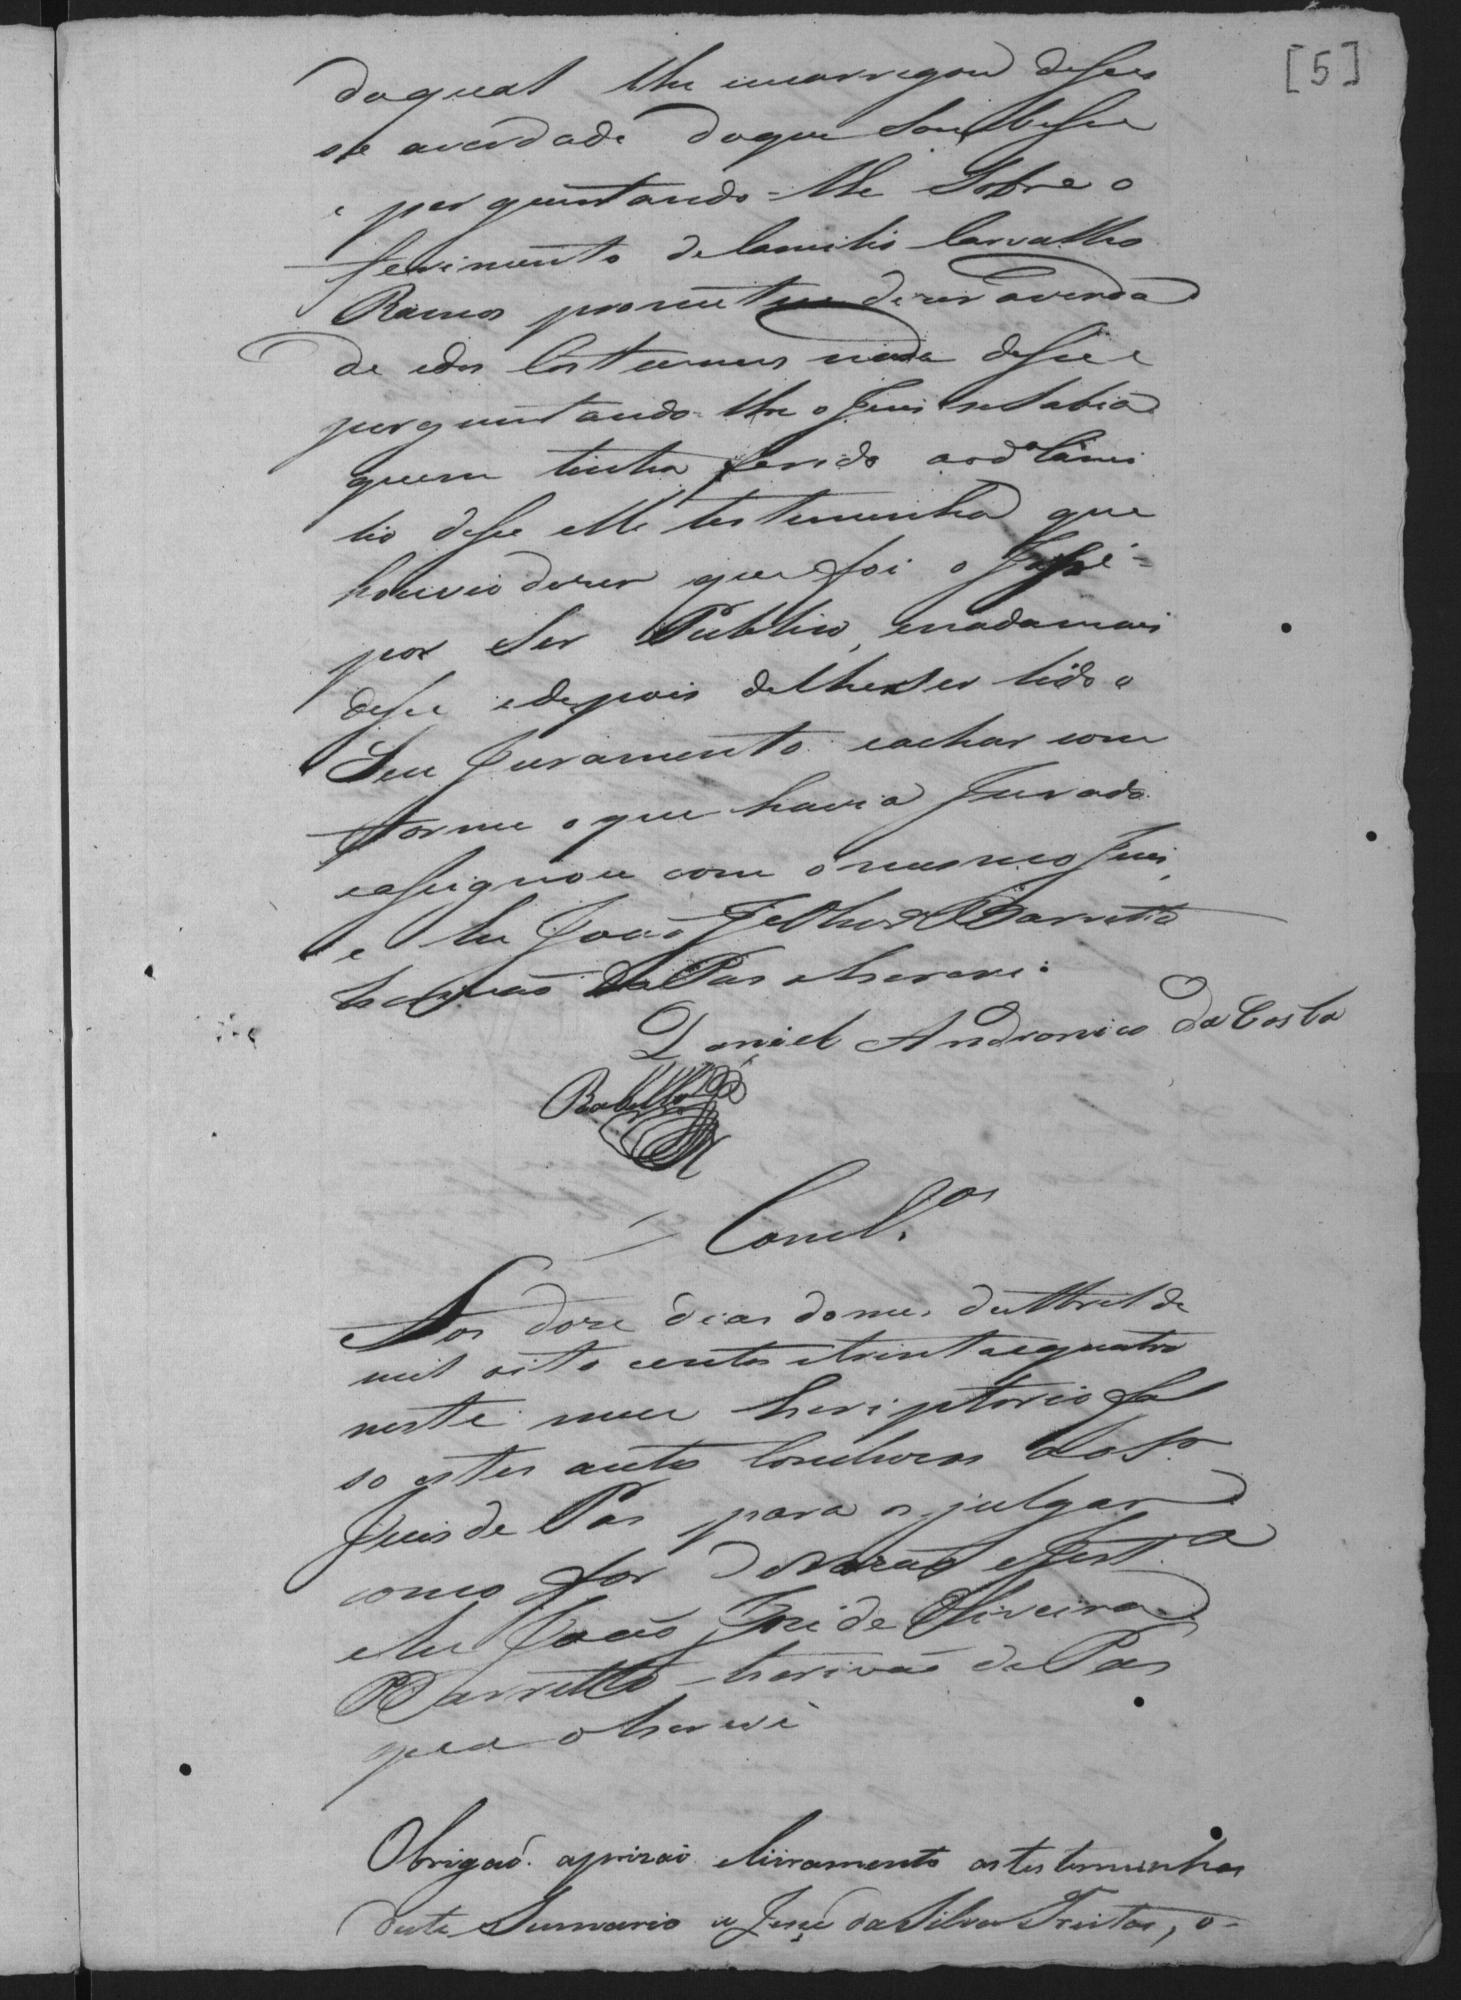 [5]
doqual lhe encarregou disses
se averdade doque Soubesse
e perguntando-lhe Sobre o
ferimento de Camilio Carvalho
Ramos prometeu dizer averda
de edos Costumes nada disse e
perguntando-lhe o Juis se Sabia
quem tinha ferido aod.º Cami
lio disse elle testemunha que
houvio dizer que foi o José
por Ser Publico, enadamais
disse edepois delheser lido o
Seu Juramento eachar con
forme o que havia Jurado
easignou com o mesmo Juis,
e Eu João Barretto
Escrivão de Pas o Escrevi.
Daniel Andronico da Costa
Rabello
Concl.os
Aos doze dias domes de Abril de
mil oito centos etrinta equatro
neste meu Escriptorio fa
so estes autos Concluzos ao Sr.
Juis de Pas para os julgar
como for Derazão eJust.a
eEu João José de Oliveira
Barretto Escrivão de Pas
que o Escrevi
Obrigaõ. aprizaõ elivramento astestemunhas
deste Sumario a José da Silva Freitas, o-